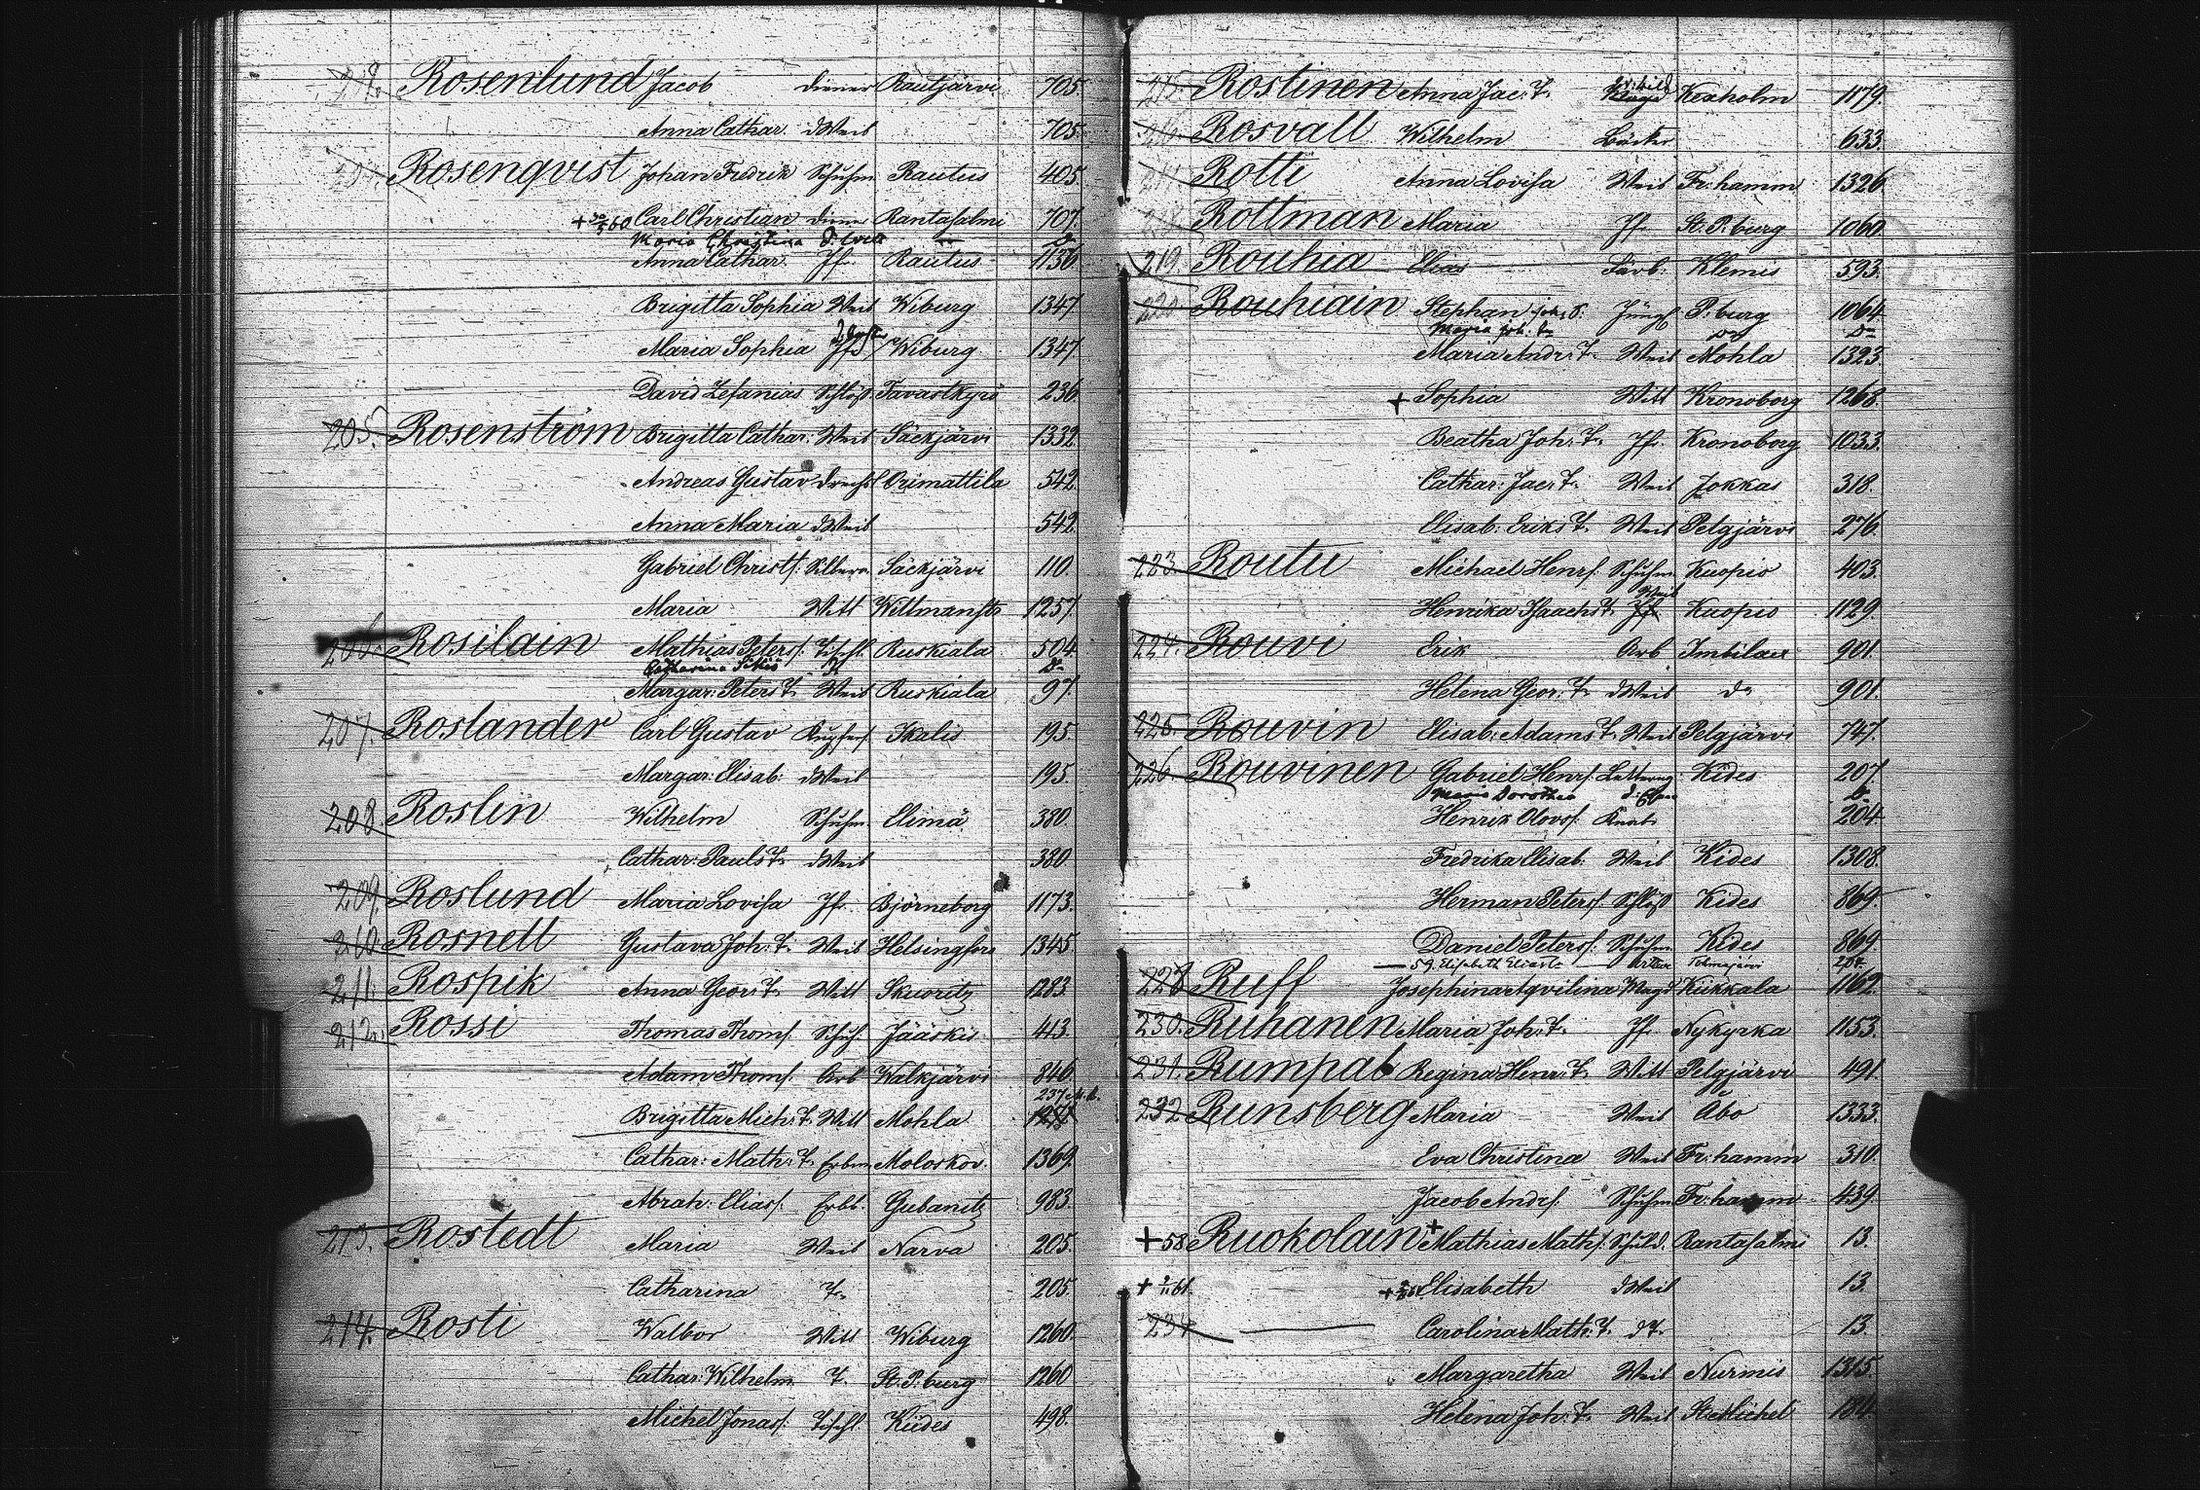 Rosenlund Jacob diener Rautjärvi 705.
Anna Cathar. dWeib 705.
Rosenqvist Johan Fredrik Schuhm. Rautus 405.
Carl Christian diener Rantasalmi 707.
Maria Christina d. Weib
Anna Cathar. Jfr. Rautus 1136
Brigitta Sophia Weib Wiburg 1347.
Maria Sophia Wiburg 1347
David Zefanias Schloß. Tavastkyrö 236
205. Rosenström Brigitta Cathar: Weib Säckjärvi 1332.
Andreas Gustav Drechsl Orimattila 542.
Anna Maria dWeib 542.
Gabriel Christf. Silberar. Säckjärvi 110.
Maria Witt Wittmansstr 1257.
206. Rosilain Mathias Petersf. Tischl. Ruskiala 504
Margar: Peters T. Weib Ruskiala 97.
207. Roslander Carl Gustav Kupfers. Ikalis 195.
Margar: Elisab: dWeib 195.
208 Roslin Wilhelm Schuhm. Elimä 380.
Cathar: Pauls T. dWeib 380
209. Roslund Maria Lovisa Jfr. Björneborg 1173.
210 Rosnell Gustava Joh: T. Weib Helsingfors 1345
211. Rospik Anna Geor: T. Witt Skuoritz 1283.
212. Rossi Thomas Thomf. Schuh. Jääskis 413.
Adam Thomf. Arb Walkjärvi 846.
Brigitta Mich: T. Witt Mohla
Cathar: Math: T. Erbm. Moloskov. 1369.
Abrah: Eliasf. Erbl. Gubanitz 983.
213. Rostedt Maria Weib Narva 205.
Catharina T. 205.
214. Rosti Walbor Witt Wiburg 1260.
Cathar: Wilhelm T. St. P: burg 1260
Michel Jonasf. Tischl. Kides 498.
215. Rostinen Anna Jac: T. Kexholm 1179.
Rosvall Wilhelm Bäcker 633.
Rotti Anna Lovisa Weib Fr: hamm 1326.
218 Rottman Maria Jfr. St. P: burg 1060.
219. Rouhia Elias Färb. Klemis 593.
220 Rouhiain Stephan Joh: S. Jüngl P: burg 1064.
Maria Joh: T. do do
Maria Andr: T. Weib Mohla 1323.
+ Sophia Witt Kronoborg 1268.
Beatha Joh: T. Jfr. Kronoborg 1033.
Cathar: Jac: T. Weib Jokkas 318.
Elisab: Eriks T. Weib Pelgjärvi 276.
223. Routu Michael Henrf. Schuhm. Kuopio 403.
Henrika Isaachs T. Weib Kuopio 1129.
224. Rouvi Erik Arb Imbilax 901.
Helena Geor: T. dWeib do 901.
225. Rouvin Elisab: Adams T. Weib Pelgjärvi 747.
226. Rouvinen Gabriel Henrf. Kides 207.
Maria Dorothea
Henrik Olovsf. Knab. 204.
Fredrika Elisab. Weib Kides 1308.
Herman Petersf. Schloß Kides 869.
Daniel Petersf. Schuhm. Kides 869.
59. Elisabeth
228 Ruff Josephina Aqvilina Magd Kiikkala 1162.
230. Ruhanen Maria Joh: T. Jfr. Nykyrka 1153.
231. Rumpal Regina Henr: T. Witt Pelgjärvi 491.
232 Runsberg Maria Weib Åbo 1333.
Eva Christina Weib Fr: hamm 310.
Jacob Andrf. Schuhm Fr: hamm 439.
+ 58 Ruokolain + Mathias Mathf. Schuld. Rantasalmi 13.
Elisabeth dWeib 13.
234 Carolina Math: T. dT. 13.
Margaretha Weib Nurmis 1315.
Helena Joh: T. Weib St Michel 184.